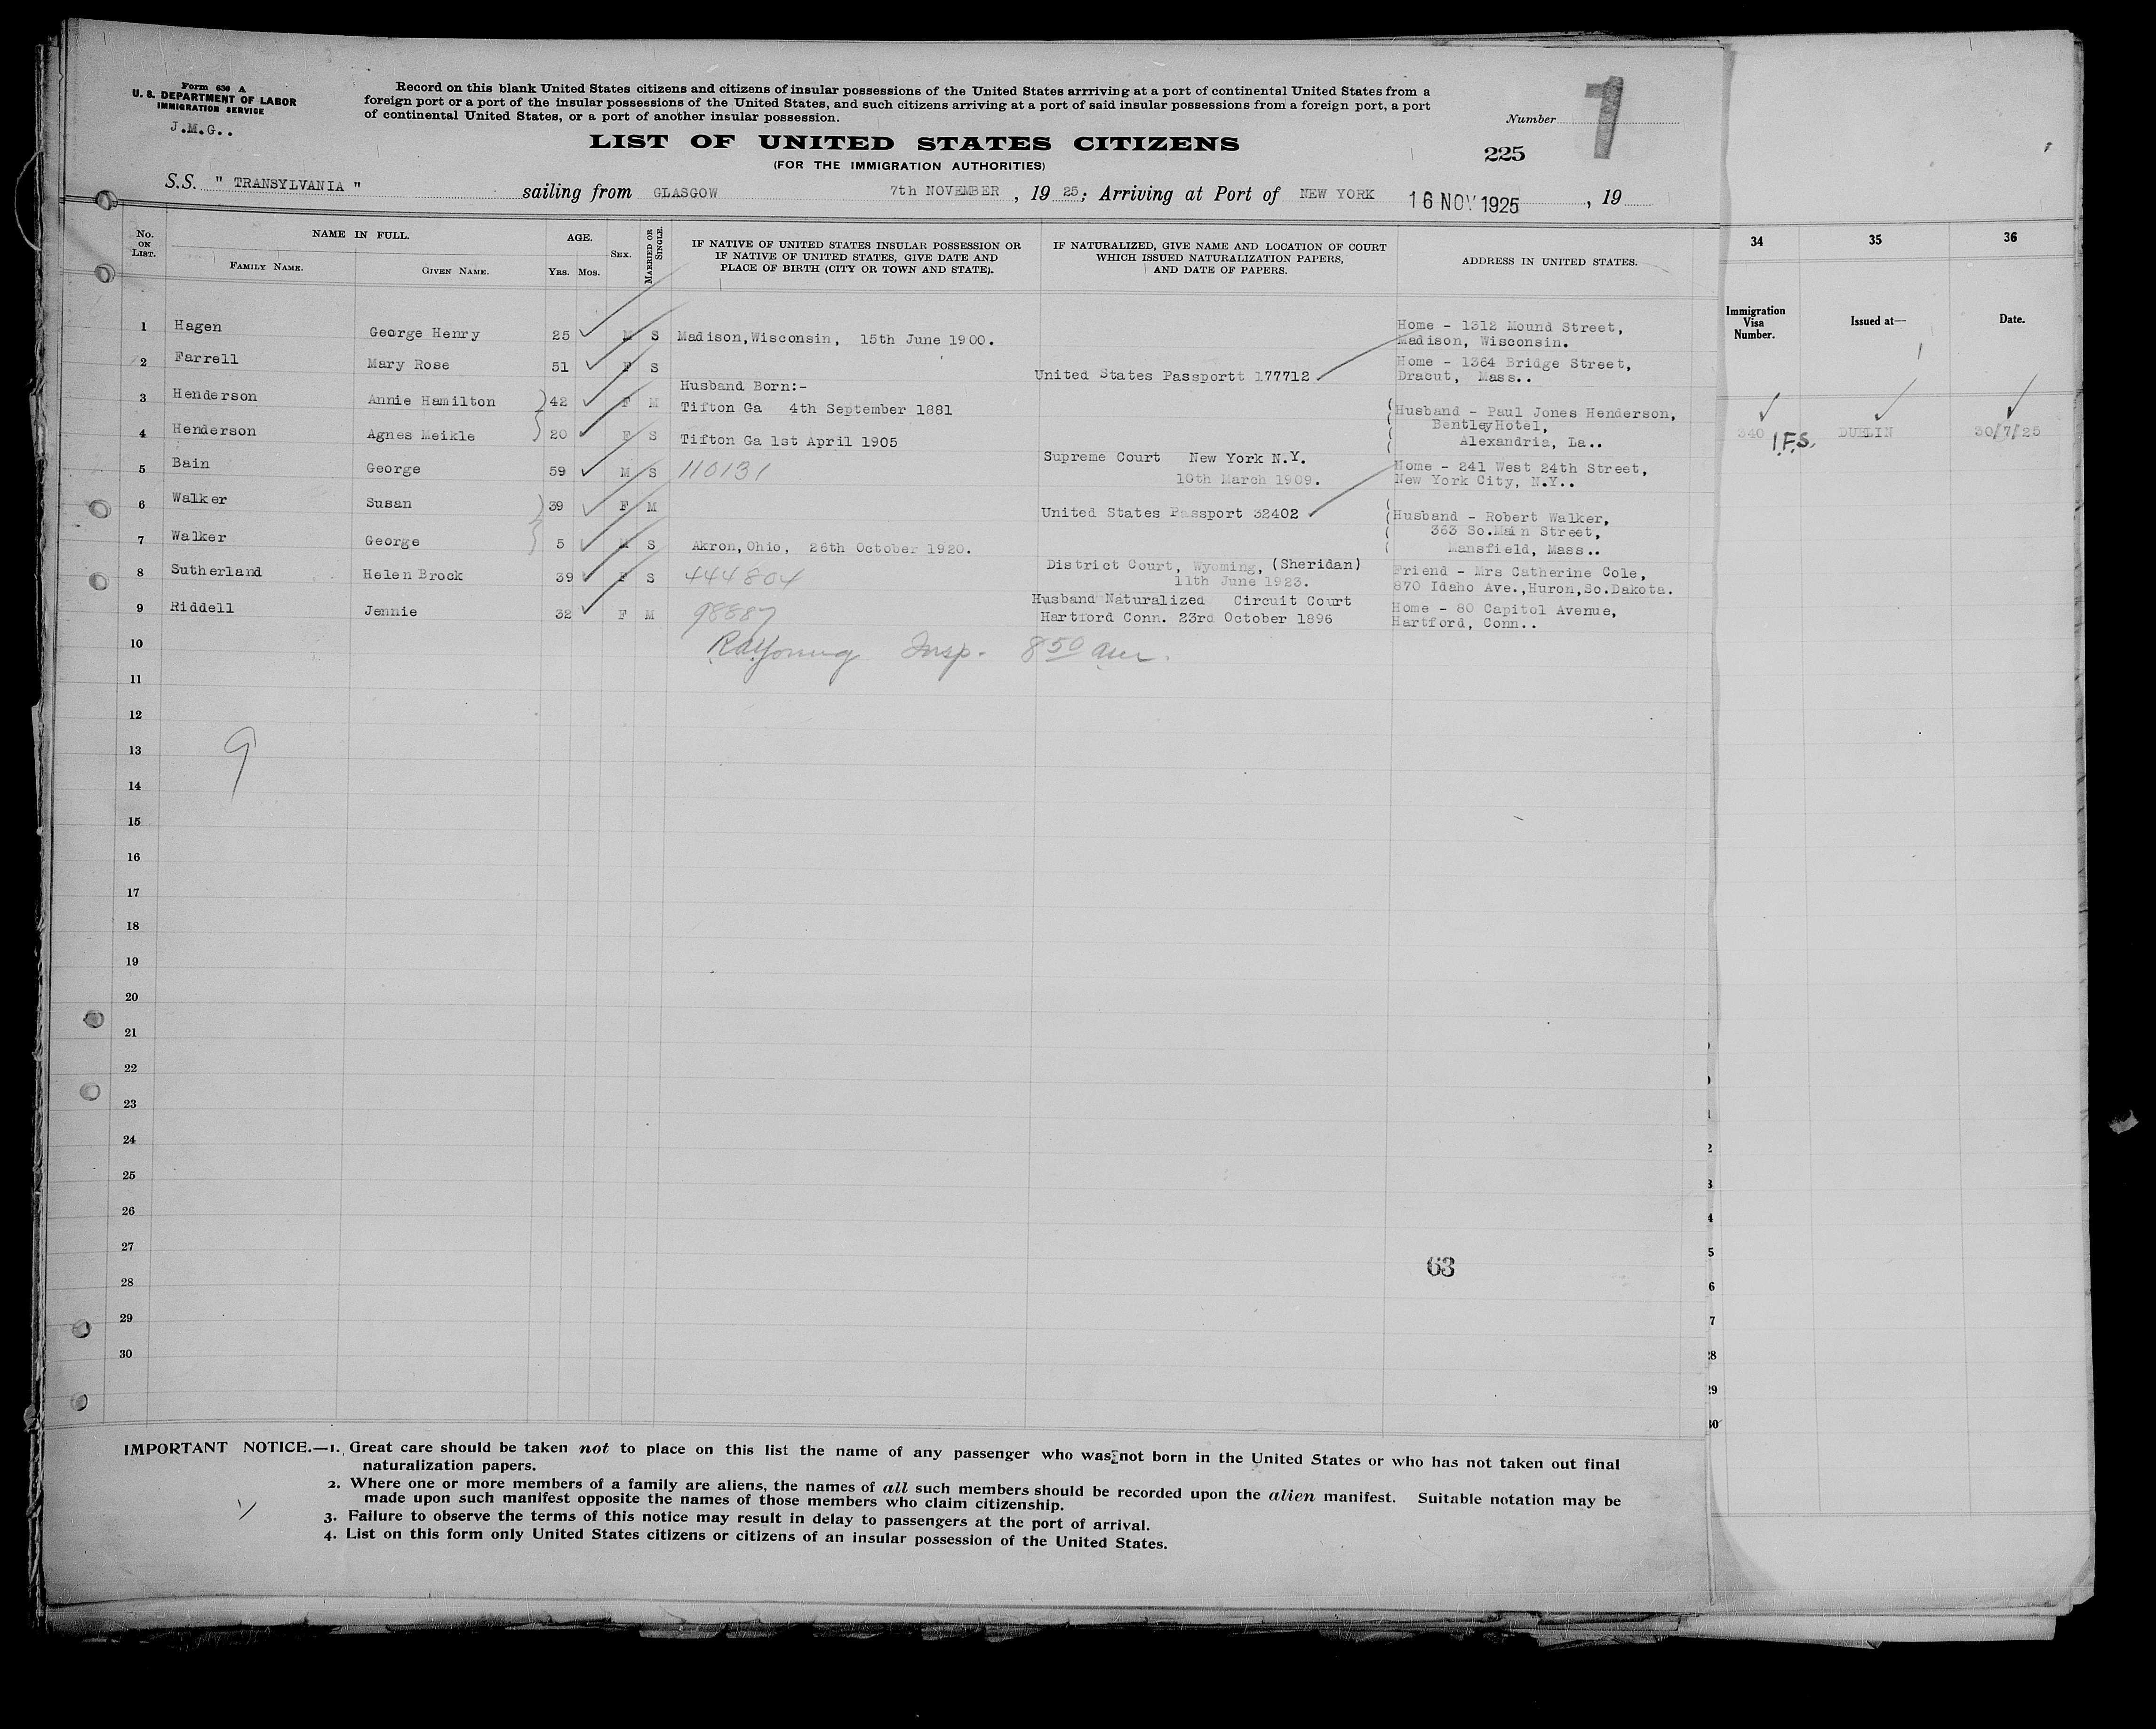 Form 630 A
U. S. DEPARTMENT OF LABOR
IMMIGRATION SERVICE
J.M.G..
Record on this blank United States citizens and citizens of insular possessions of the United States arrriving at a port of continental United States from a
foreign port or a port of the insular possessions of the United States, and such citizens arriving at a port of said insular possessions from a foreign port, a port
of continental United States, or a port of another insular possession.
Number
7
225
LIST OF UNITED STATES CITIZENS
(FOR THE IMMIGRATION AUTHORITIES)
S.S. " TRANSYLVANIA " sailing from GLASGOW 7th NOVEMBER , 19 25; Arriving at Port of NEW YORK 16 NOV 1925 , 19
No. ON LIST. NAME IN FULL. FAMILY NAME. GIVEN NAME. AGE. YRS. MOS. SEX. MARRIED OR SINGLE. IF NATIVE OF UNITED STATES INSULAR POSSESSION OR
IF NATIVE OF UNITED STATES, GIVE DATE AND
PLACE OF BIRTH (CITY OR TOWN AND STATE).
IF NATURALIZED, GIVE NAME AND LOCATION OF COURT
WHICH ISSUED NATURALIZATION PAPERS,
AND DATE OF PAPERS.
ADDRESS IN UNITED STATES.
34 35 36
Immigration Visa Number. Issued at— Date.
1 Hagen George Henry 25 M S Madison,Wisconsin, 15th June 1900. Home - 1312 Mound Street,
Madison, Wisconsin.
2 Farrell Mary Rose 51 F S United States Passportt 177712 Home - 1364 Bridge Street,
Dracut, Mass..
Husband Born:-
3 Henderson Annie Hamilton 42 F M Tifton Ga 4th September 1881 Husband - Paul Jones Henderson,
BentleyHotel,
4 Henderson Agnes Meikle 20 F S Tifton Ga 1st April 1905 Alexandria, La..
340 I.F.S. DUBLIN 30/7/25
5 Bain George 59 M S 110131 Supreme Court New York N.Y.
10th March 1909.
Home - 241 West 24th Street,
New York City, N.Y..
6 Walker Susan 39 F M United States Passport 32402 Husband - Robert Walker,
363 So.Main Street,
7 Walker George 5 M S Akron,Ohio, 26th October 1920. Mansfield, Mass..
8 Sutherland Helen Brock 39 F S 444804 District Court, Wyoming, (Sheridan)
11th June 1923.
Friend - Mrs Catherine Cole,
870 Idaho Ave.,Huron,So.Dakota.
9 Riddell Jennie 32 F M 98887 Husband Naturalized Circuit Court
Hartford Conn. 23rd October 1896
Home - 80 Capitol Avenue,
Hartford, Conn..
10 Insp. 8 50 am.
11
12
13
9
14
15
16
17
18
19
20
21
22
23
24
25
26
27
63
28
29
30
IMPORTANT NOTICE.—1. Great care should be taken not to place on this list the name of any passenger who was not born in the United States or who has not taken out final
naturalization papers.
2. Where one or more members of a family are aliens, the names of all such members should be recorded upon the alien manifest. Suitable notation may be
made upon such manifest opposite the names of those members who claim citizenship.
3. Failure to observe the terms of this notice may result in delay to passengers at the port of arrival.
4. List on this form only United States citizens or citizens of an insular possession of the United States.